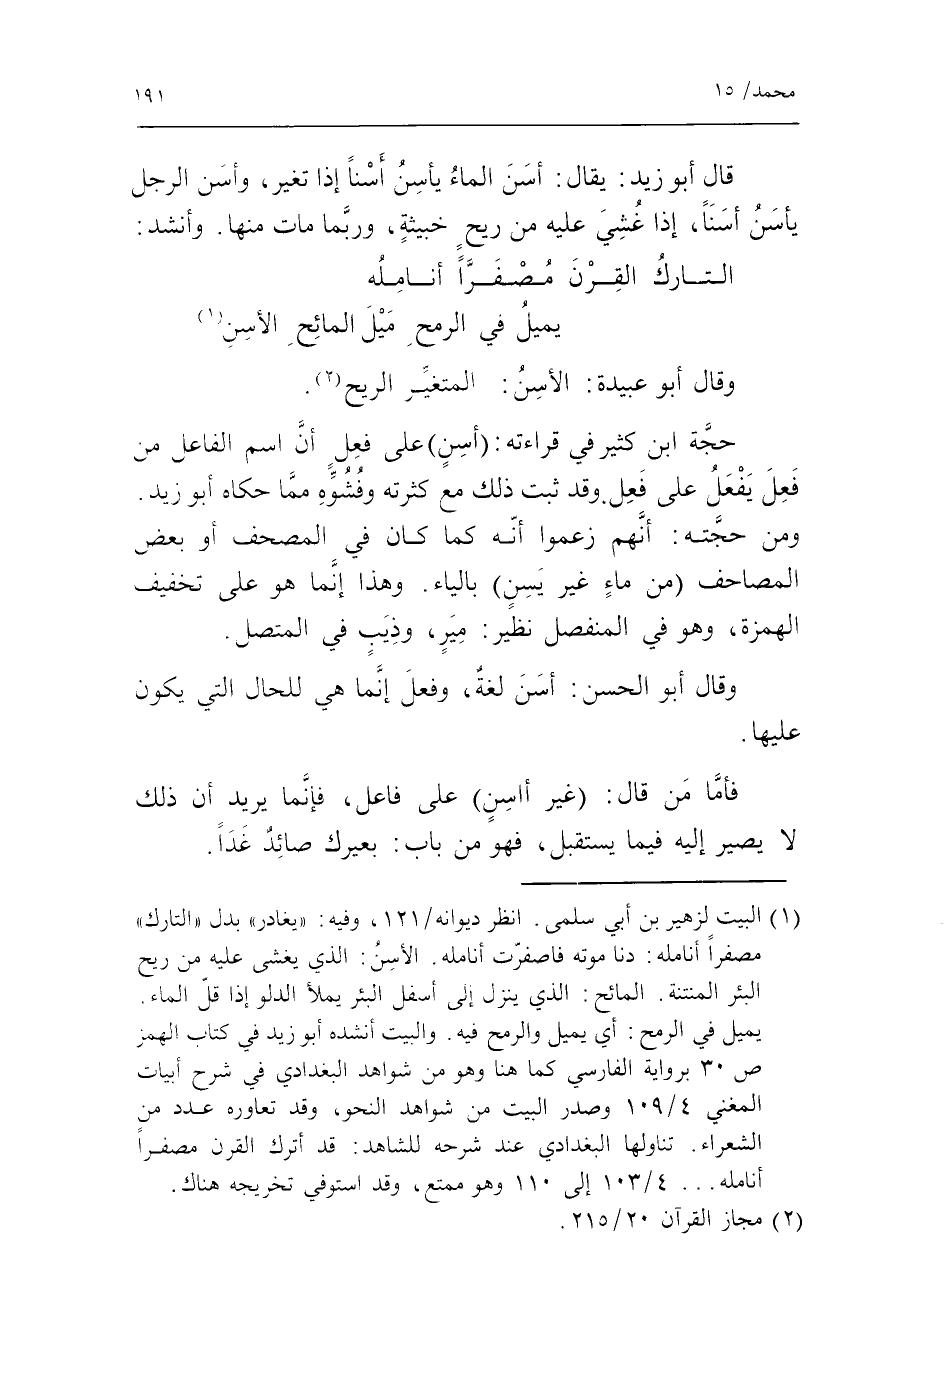 محمد/ ١٥
١٩١
قال أبو زيد: يقال: أسَنَ الماءُ يأسِنُ أَسْناً إذا تغير، وأسَن الرجل
يأسَنُ أسَنَاً، إذا غُشِيَ عليه من ريحٍ خبيثةٍ، وربَّما مات منها. وأنشد:
التاركُ القِرْنَ مُصْفَرَّاً أنامِلُه
يميلُ في الرمحِ مَيْلَ المائحِ الأسِنِ(١)
وقال أبو عبيدة: الأسِنُ: المتغيِّر الريح(٢).
حجَّة ابن كثير في قراءته: (أسِنٍ) على فعِلٍ أنَّ اسم الفاعل من
فَعِلَ يَفْعَلُ على فَعِلٍ. وقد ثبت ذلك مع كثرته وفُشُوِّهِ ممَّا حكاه أبو زيد.
ومن حجَّته: أنَّهم زعموا أنّه كما كان في المصحف أو بعض
المصاحف (من ماءٍ غير يَسِنٍ) بالياء. وهذا إنَّما هو على تخفيف
الهمزة، وهو في المنفصل نظير: مِيَرٍ، وذِيَبٍ في المتصل.
وقال أبو الحسن: أسَنَ لغةٌ، وفعلَ إنَّما هي للحال التي يكون
عليها.
فأمَّا مَن قال: (غير أاسِنٍ) على فاعل، فإنَّما يريد أن ذلك
لا يصير إليه فيما يستقبل، فهو من باب: بعيرك صائِدٌ غَدَاً.
(١) البيت لزهير بن أبي سلمى. انظر ديوانه/١٢١، وفيه: «يغادر» بدل «التارك»
مصفراً أنامله: دنا موته فاصفرّت أنامله. الأسِنُ: الذي يغشى عليه من ريح
البئر المنتنة. المائح: الذي ينزل إلى أسفل البئر يملأ الدلو إذا قلّ الماء.
يميل في الرمح: أي يميل والرمح فيه. والبيت أنشده أبو زيد في كتاب الهمز
ص ٣٠ برواية الفارسي كما هنا وهو من شواهد البغدادي في شرح أبيات
المغني ١٠٩/٤ وصدر البيت من شواهد النحو، وقد تعاوره عدد من
الشعراء. تناولها البغدادي عند شرحه للشاهد: قد أترك القرن مصفراً
أنامله... ١٠٣/٤ إلى ١١٠ وهو ممتع، وقد استوفي تخريجه هناك.
(٢) مجاز القرآن ٢١٥/٢٠.